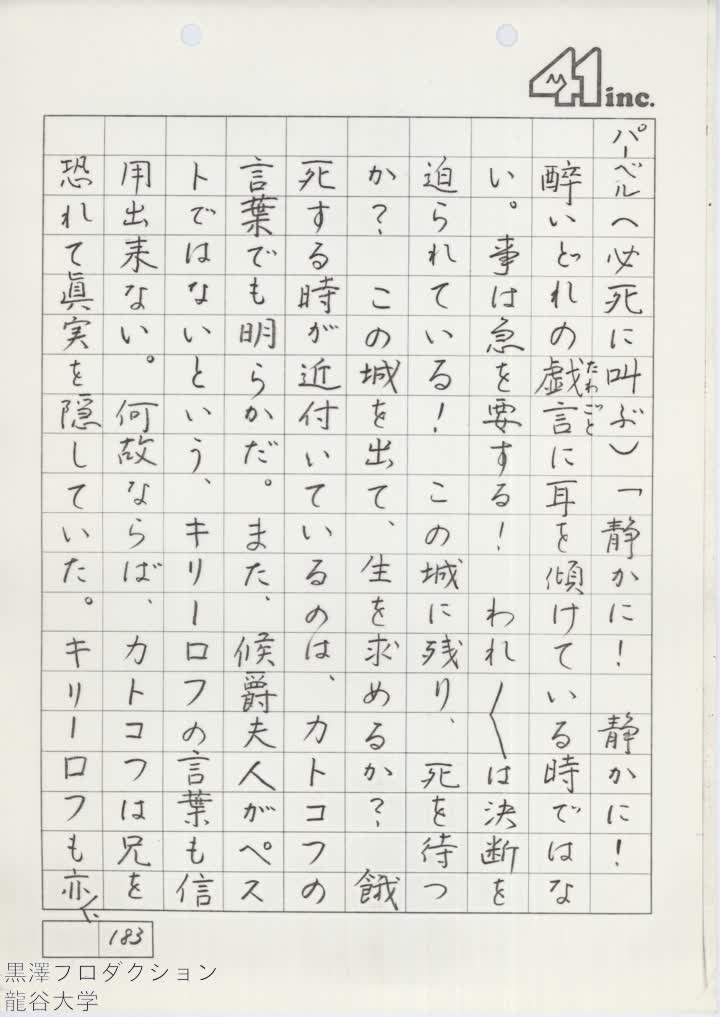 41 inc.
パーベルへ必死に叫ぶ)「静かに! 静かに!
醉いどれの戯言に耳を傾けている時ではな
たわごと
い。事は急を要する! われ〱は決断を
迫られている! この城に残り、死を待つ
か? この城を出て、生を求めるか? 餓
死する時が近付いているのは、カトコフの
言葉でも明らかだ。また、候爵夫人がペス
トではないという、キリーロフの言葉も信
用出来ない。何故ならば、カトコフは兄を
恐れて眞実を隠していた。キリーロフも亦
183
黒澤プロダクション
龍谷大学